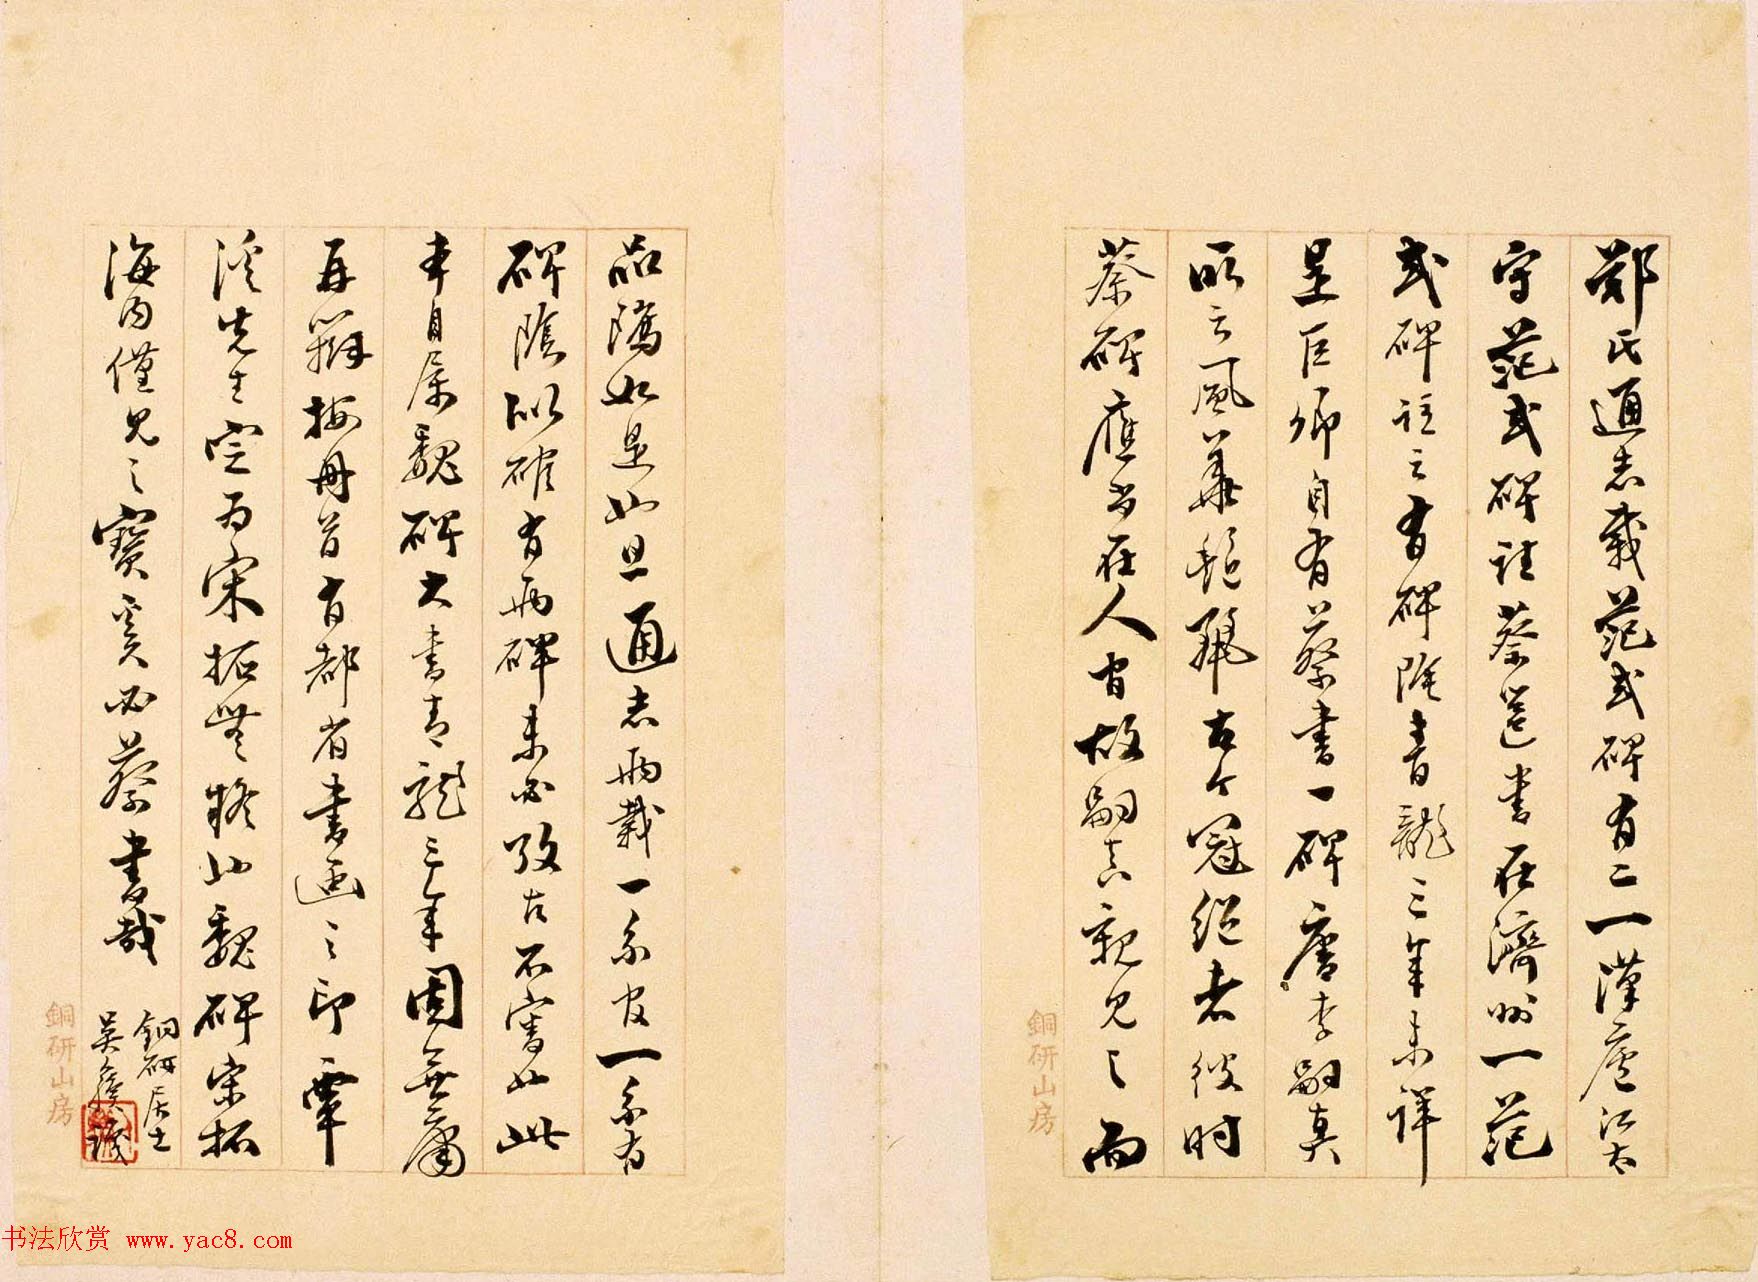 鄭氏通志載范式碑有二一漢廬江太
守范式碑注蔡邕書在濟州一范
式碑注云有碑陰青龍三年未詳
是巨卿自有蔡書一碑唐李嗣真
所云風華艷麗古今冠絕者彼時
蔡碑應尚在人間故嗣真親見之而
品隲如是也且通志兩載一系官一系有
碑陰似確有兩碑未必改古不審也此
本自屬魏碑大書青龍三年固無庸
再辯按冊首有都省書画之印覃
溪先生定為宋拓無疑此魏碑宋拓
海內僅見之寶奚必蔡書哉
銅研居士
吳儀識
銅研山房
銅研山房
书法欣赏 www.yac8.com